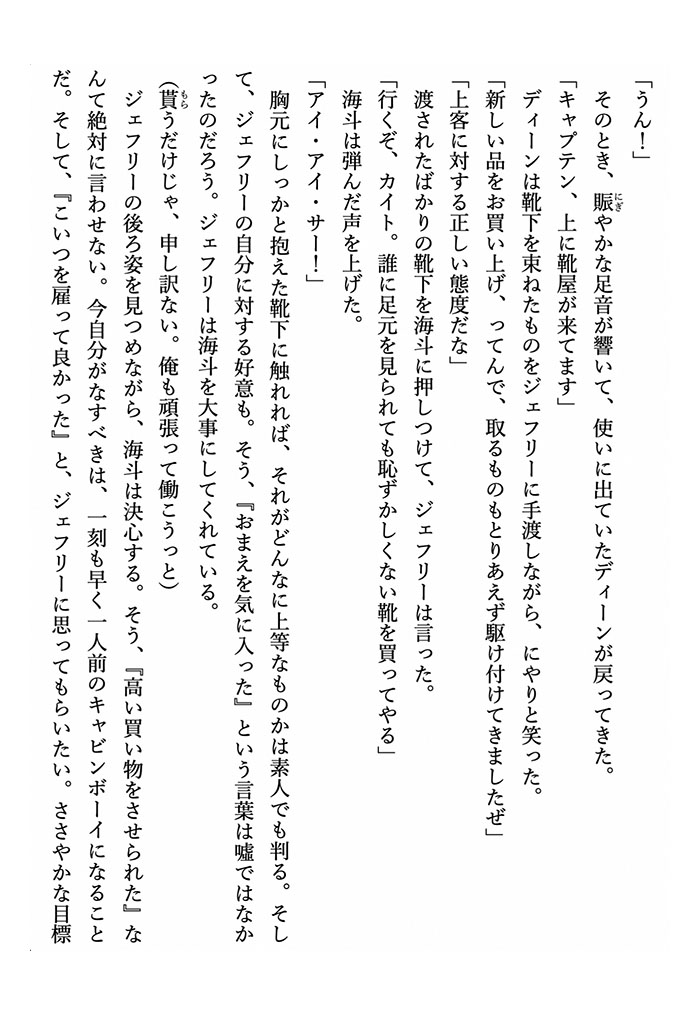 「うん！」
そのとき、賑やかな足音が響いて、使いに出ていたディーンが戻ってきた。
「キャプテン、上に靴屋が来てます」
ディーンは靴下を束ねたものをジェフリーに手渡しながら、にやりと笑った。
「新しい品をお買い上げ、ってんで、取るものもとりあえず駆け付けてきましたぜ」
「上客に対する正しい態度だな」
渡されたばかりの靴下を海斗に押しつけて、ジェフリーは言った。
「行くぞ、カイト。誰に足元を見られても恥ずかしくない靴を買ってやる」
海斗は弾んだ声を上げた。
「アイ・アイ・サー！」
胸元にしっかと抱えた靴下に触れれば、それがどんなに上等なものかは素人でも判る。そし
て、ジェフリーの自分に対する好意も。そう、『おまえを気に入った』という言葉は嘘ではなか
ったのだろう。ジェフリーは海斗を大事にしてくれている。
（貰うだけじゃ、申し訳ない。俺も頑張って働こうっと）
ジェフリーの後ろ姿を見つめながら、海斗は決心する。そう、『高い買い物をさせられた』な
んて絶対に言わせない。今自分がなすべきは、一刻も早く一人前のキャビンボーイになること
だ。そして、『こいつを雇って良かった』と、ジェフリーに思ってもらいたい。ささやかな目標